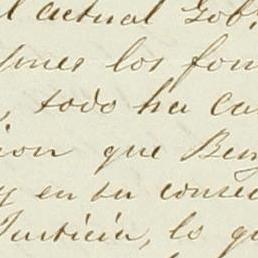 l actual Gob
pues los fon
, todo ha ca
ion que Ben
y en su consec
Justicia, lo qu